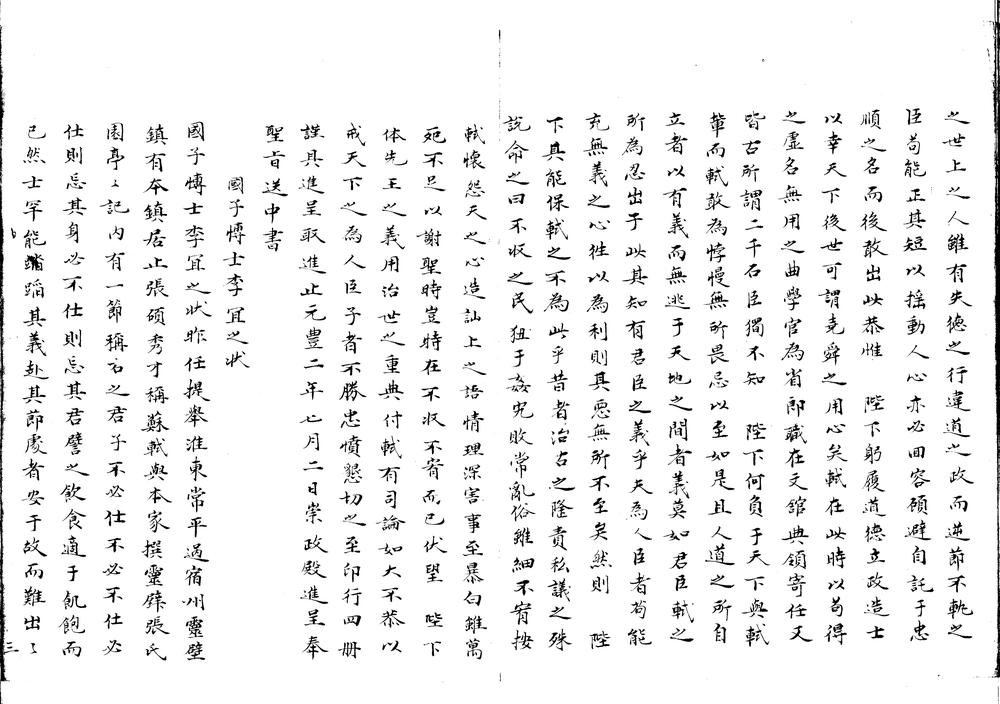 之世上之人雖有失德之行違道之政而逆節不軌之
臣苟能正其短以搖動人心亦必回容顧避自託于忠
順之名而後敢出此恭惟　陛下躬履道德立政造士
以幸天下後世可謂堯舜之用心矣軾在此時以苟得
之虛名無用之曲學官為省郎職在文館典領寄任又
皆古所謂二千石臣獨不知　陛下何負于天下與軾
輩而軾敢為悖慢無所畏忌以至如是且人道之所自
立者以有義而無逃于天地之間者義莫如君臣軾之
所為忍出于此其知有君臣之義乎夫為人臣者苟能
充無義之心往以為利則其惡無所不至矣然則　陛
下其能保軾之不為此乎昔者治古之隆責私議之殊
說命之曰不收之民狃于姦宄敗常亂俗雖細不宥按
軾懷怨天之心造訕上之語情理深害事至暴白雖萬
死不足以謝聖時豈特在不收不宥而已伏望　陛下
体先王之義用治世之重典付軾有司論如大不恭以
戒天下之為人臣子者不勝忠憤懇切之至印行四冊
謹具進呈取進止元豊二年七月二日崇政殿進呈奉
聖旨送中書
國子博士李冝之狀
國子博士李冝之狀昨任提舉淮東常平過宿州靈壁
鎮有夲鎮居止張碩秀才稱蘇軾與本家撰靈壁張氏
園亭〻記內有一節稱古之君子不必仕不必不仕必
仕則忘其身必不仕則忘其君譬之飲食適于飢飽而
已然士罕能蹈其義赴其節處者安于故而難出〻
三